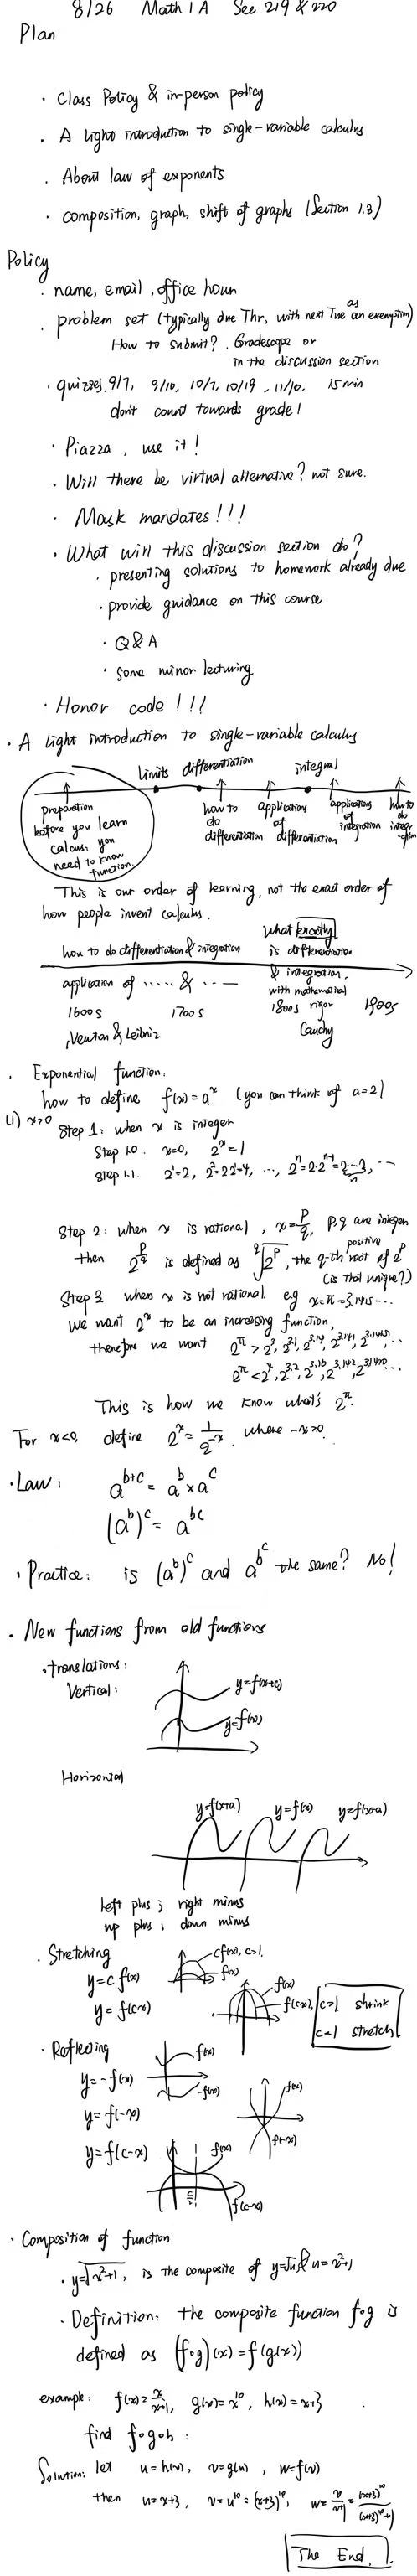 8/26 Math 1A Sec 219 & 220
Plan
· Class Policy & in-person policy
· A light introduction to single-variable calculus
· About law of exponents
· composition, graph, shift of graphs (Section 1.3)
Policy
· name, email, office hours
· problem set (typically due Thr, with next Tue as an exemption)
How to submit? Gradescope or
in the discussion section
· quizzes, 9/7, 9/10, 10/7, 10/19, 11/10. 15 min
don't count towards grade!
· Piazza, use it!
· Will there be virtual alternative? not sure.
· Mask mandates!!!
· What will this discussion section do?
· presenting solutions to homework already due
· provide guidance on this course
· Q&A
· some minor lecturing
· Honor code!!!
· A light introduction to single-variable calculus
limits differentiation integral
preparation
before you learn
calcus, you
need to know
function.
how to
do
differentiation
application
of
differentiation
applications
of
integration
how to
do
integr
-ation
This is our order of learning, not the exact order of
how people invent calculus.
how to do differentiation & integration
what exactly
is differentiation
& integration,
with mathematical
rigor
application of ..... & ...
1600s 1700s 1800s 1900s
Newton & Leibniz Cauchy
· Exponential function:
how to define f(x)=a^x (you can think of a=2)
(1) x>0
Step 1: when x is integer
Step 1.0. x=0, 2^x=1
Step 1.1. 2^1=2, 2^2=2·2=4, ..., 2^n=2·2^{n-1}=2···2, ...
n
Step 2: when x is rational, x=p/q, p,q are integers
positive
then 2^{p/q} is defined as q√2^p, the q-th root of 2^p
(is that unique?)
Step 3 when x is not rational. e.g x=π=3.1415...
we want 2^x to be an increasing function,
therefore we want 2^π > 2^3, 2^3.1, 2^3.14, 2^3.141, 2^3.1415, ...
2^π < 2^4, 2^3.2, 2^3.15, 2^3.142, ...
This is how we know what's 2^π.
For x<0, define 2^x = 1/2^{-x}, where -x>0.
· Law: a^{b+c} = a^b × a^c
(a^b)^c = a^{bc}
· Practice: is (a^b)^c and a^{b^c} the same? No!
· New functions from old functions
· translations:
Vertical:
y=f(x+c)
y=f(x)
Horizontal
y=f(x+a) y=f(x) y=f(x-a)
left plus; right minus
up plus; down minus
· Stretching
y=c f(x)
cf(x), c>1.
f(x)
y=f(cx)
f(x)
f(cx),
c>1 shrink
c<1 stretch
· Reflecting
y=-f(x)
f(x)
-f(x)
y=f(-x)
f(x)
f(-x)
y=f(c-x)
f(x)
c/2
f(c-x)
· Composition of function
· y=√x²+1, is the composite of y=√u & u=x²+1
· Definition: the composite function f∘g is
defined as (f∘g)(x)=f(g(x))
example: f(x)=x/(x+1), g(x)=x^10, h(x)=x+3
find f∘g∘h:
Solution: let u=h(x), v=g(u), w=f(v)
then u=x+3, v=u^10=(x+3)^10, w=v/(v+1)=(x+3)^10/((x+3)^10+1)
The End.